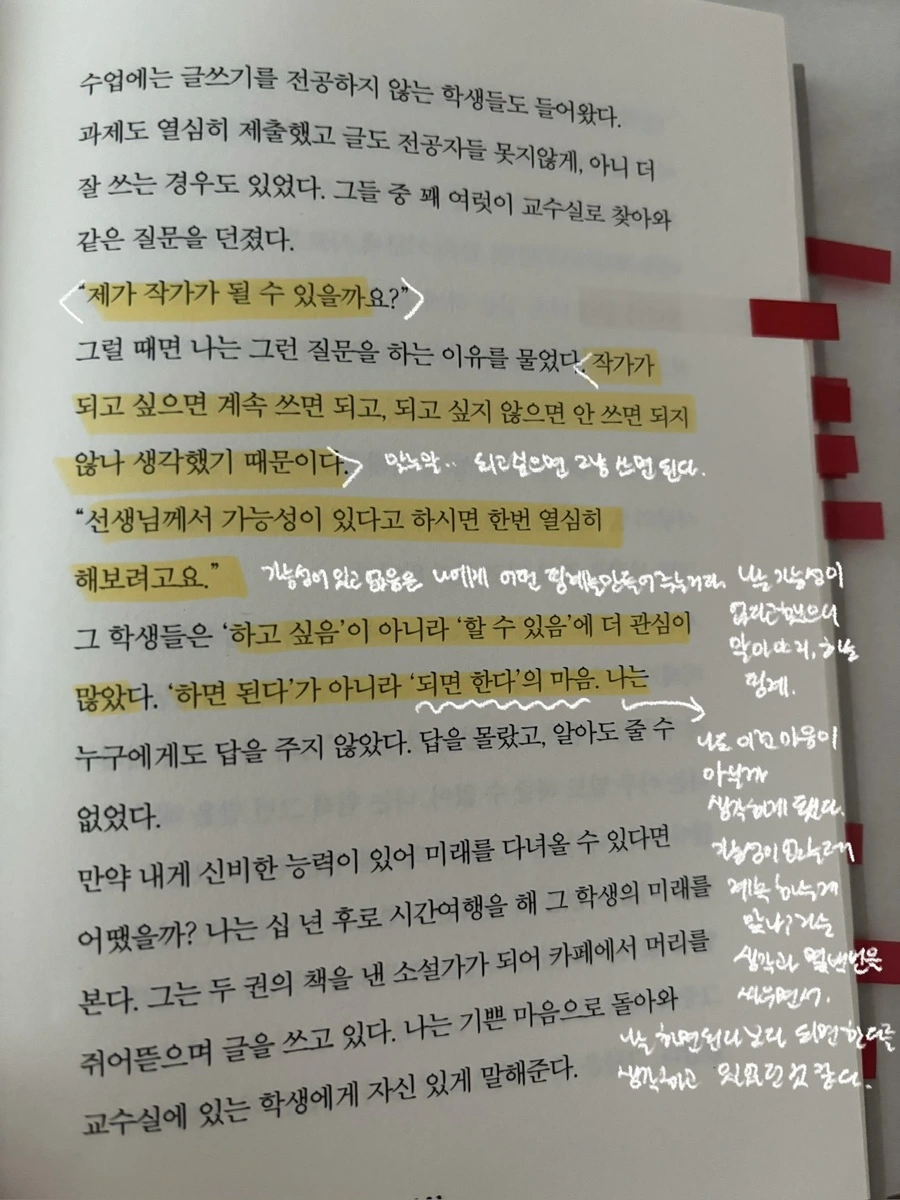 수업에는 글쓰기를 전공하지 않는 학생들도 들어왔다.
과제도 열심히 제출했고 글도 전공자들 못지않게, 아니 더
잘 쓰는 경우도 있었다. 그들 중 꽤 여럿이 교수실로 찾아와
같은 질문을 던졌다.
“제가 작가가 될 수 있을까요?”
그럴 때면 나는 그런 질문을 하는 이유를 물었다. 작가가
되고 싶으면 계속 쓰면 되고, 되고 싶지 않으면 안 쓰면 되지
않나 생각했기 때문이다.
되고싶으면 그냥 쓰면 된다.
“선생님께서 가능성이 있다고 하시면 한번 열심히
해보려고요.”
가능성이 있고 없음은 나에게 어떤 핑계를 만들어주는거다. 나는 가능성이
없다고했으니
말이야라, 하는
핑계.
그 학생들은 ‘하고 싶음’이 아니라 ‘할 수 있음’에 더 관심이
많았다. ‘하면 된다’가 아니라 ‘되면 한다’의 마음. 나는
누구에게도 답을 주지 않았다. 답을 몰랐고, 알아도 줄 수
없었다.
나도 이런 마음이
아닐까
생각하게 됐다.
가능성이 있는건가
계속 하는게
맞나? 라는
생각과
세우면서.
나는 하면된다 보다 되면 한다를
생각하고 있었던 것 같다.
만약 내게 신비한 능력이 있어 미래를 다녀올 수 있다면
어땠을까? 나는 십 년 후로 시간여행을 해 그 학생의 미래를
본다. 그는 두 권의 책을 낸 소설가가 되어 카페에서 머리를
쥐어뜯으며 글을 쓰고 있다. 나는 기쁜 마음으로 돌아와
교수실에 있는 학생에게 자신 있게 말해준다.